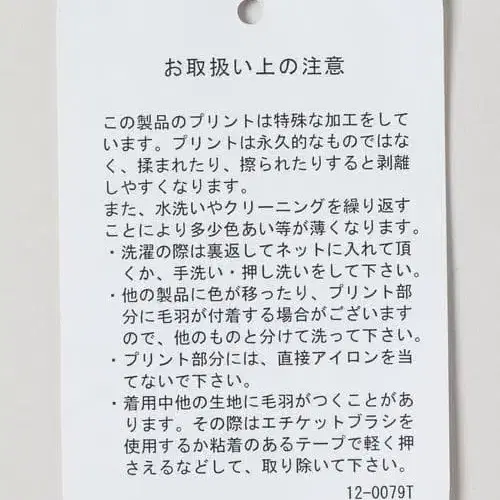 お取扱い上の注意
この製品のプリントは特殊な加工をして
います。プリントは永久的なものではな
く、揉まれたり、擦られたりすると剥離
しやすくなります。
また、水洗いやクリーニングを繰り返す
ことにより多少色あい等が薄くなります。
・洗濯の際は裏返してネットに入れて頂
くか、手洗い・押し洗いをして下さい。
・他の製品に色が移ったり、プリント部
分に毛羽が付着する場合がございます
ので、他のものと分けて洗って下さい。
・プリント部分には、直接アイロンを当
てないで下さい。
・着用中他の生地に毛羽がつくことがあ
ります。その際はエチケットブラシを
使用するか粘着のあるテープで軽く押
さえるなどして、取り除いて下さい。
12-0079T